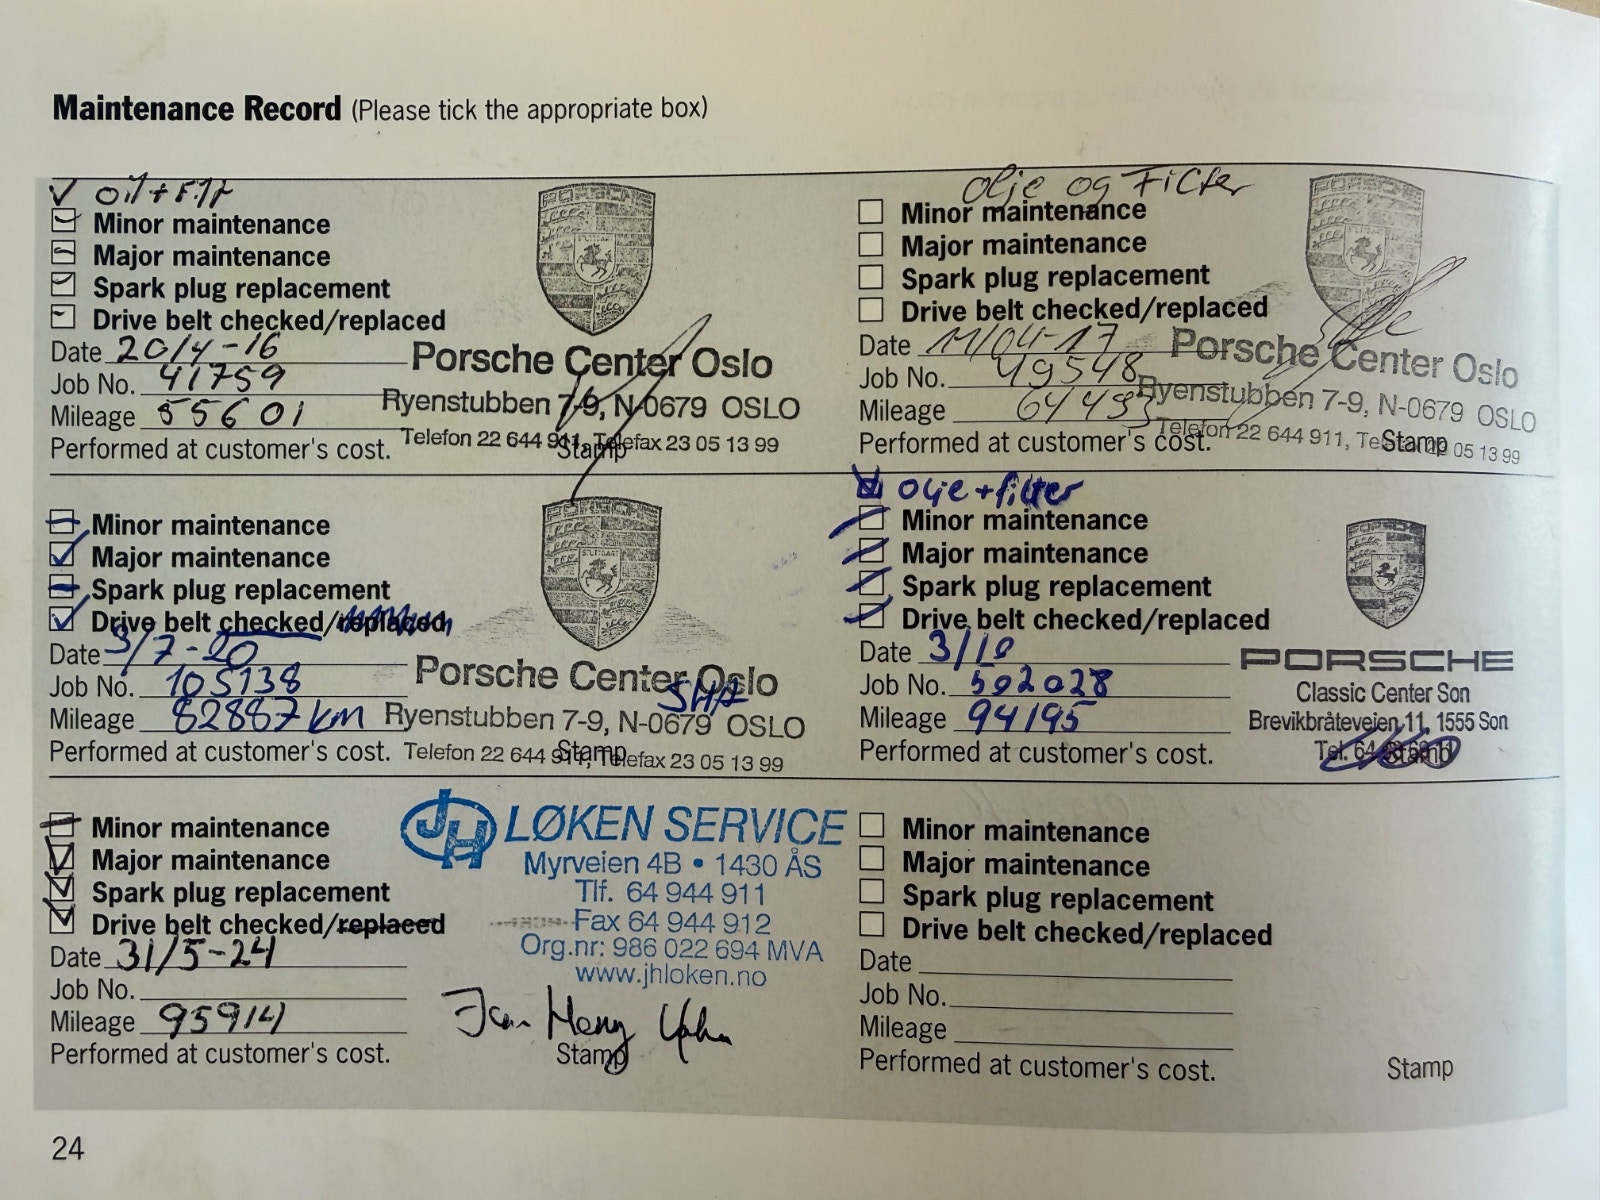 Maintenance Record (Please tick the appropriate box)
oil + Filt
Minor maintenance
Major maintenance
Spark plug replacement
Drive belt checked/replaced
Date 20/4-16
Job No. 41759
Mileage 55601
Performed at customer's cost.
PORSCHE
STUTTGART
Porsche Center Oslo
Ryenstubben 7-9, N-0679 OSLO
Telefon 22 644 911, Telefax 23 05 13 99
Stamp
Olje og Filter
Minor maintenance
Major maintenance
Spark plug replacement
Drive belt checked/replaced
Date 11/04-17
Job No. 49548
Mileage 64493
Performed at customer's cost.
PORSCHE
STUTTGART
Porsche Center Oslo
Ryenstubben 7-9, N-0679 OSLO
Telefon 22 644 911, Telefax 23 05 13 99
Stamp
Minor maintenance
Major maintenance
Spark plug replacement
Drive belt checked/replaced
Date 3/7-20
Job No. 105138
Mileage 82887 km
Performed at customer's cost.
PORSCHE
STUTTGART
Porsche Center Oslo
Ryenstubben 7-9, N-0679 OSLO
Telefon 22 644 911, Telefax 23 05 13 99
Stamp
Olje + filter
Minor maintenance
Major maintenance
Spark plug replacement
Drive belt checked/replaced
Date 3/10
Job No. 502028
Mileage 94195
Performed at customer's cost.
PORSCHE
Classic Center Son
Brevikbråteveien 11, 1555 Son
Tel. 64
Stamp
Minor maintenance
Major maintenance
Spark plug replacement
Drive belt checked/replaced
Date 31/5-24
Job No.
Mileage 95914
Performed at customer's cost.
JH LØKEN SERVICE
Myrveien 4B • 1430 ÅS
Tlf. 64 944 911
Fax 64 944 912
Org.nr: 986 022 694 MVA
www.jhloken.no
Stamp
Minor maintenance
Major maintenance
Spark plug replacement
Drive belt checked/replaced
Date
Job No.
Mileage
Performed at customer's cost.
Stamp
24